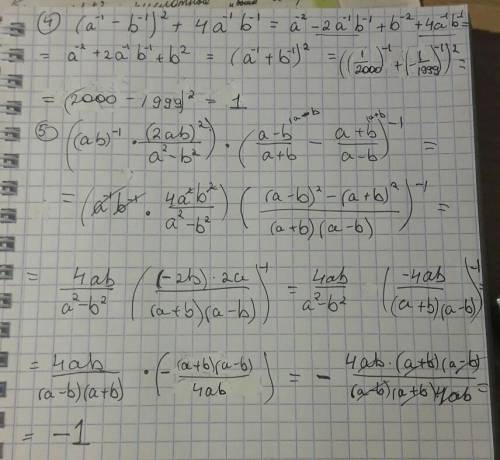 ④ (a⁻¹ − b⁻¹)² + 4a⁻¹b⁻¹ = a⁻² − 2a⁻¹b⁻¹ + b⁻² + 4a⁻¹b⁻¹ =
= a⁻² + 2a⁻¹b⁻¹ + b² = (a⁻¹ + b⁻¹)² = ((1/2000)⁻¹ + (−1/1999)⁻¹)² =
= (2000 − 1999)² = 1
⑤ ((ab)⁻¹ · (2ab)²/(a² − b²)) · ((a−b)/(a+b) − (a+b)/(a−b))⁻¹ =
= (a⁻¹b⁻¹ · 4a²b²/(a² − b²)) (((a−b)² − (a+b)²)/((a+b)(a−b)))⁻¹ =
= 4ab/(a² − b²) ((−2b)·2a/((a+b)(a−b)))⁻¹ = 4ab/(a² − b²) (−4ab/((a+b)(a−b)))⁻¹ =
= 4ab/((a−b)(a+b)) · (−(a+b)(a−b)/4ab) = − 4ab·(a+b)(a−b)/((a−b)(a+b)4ab) =
= −1